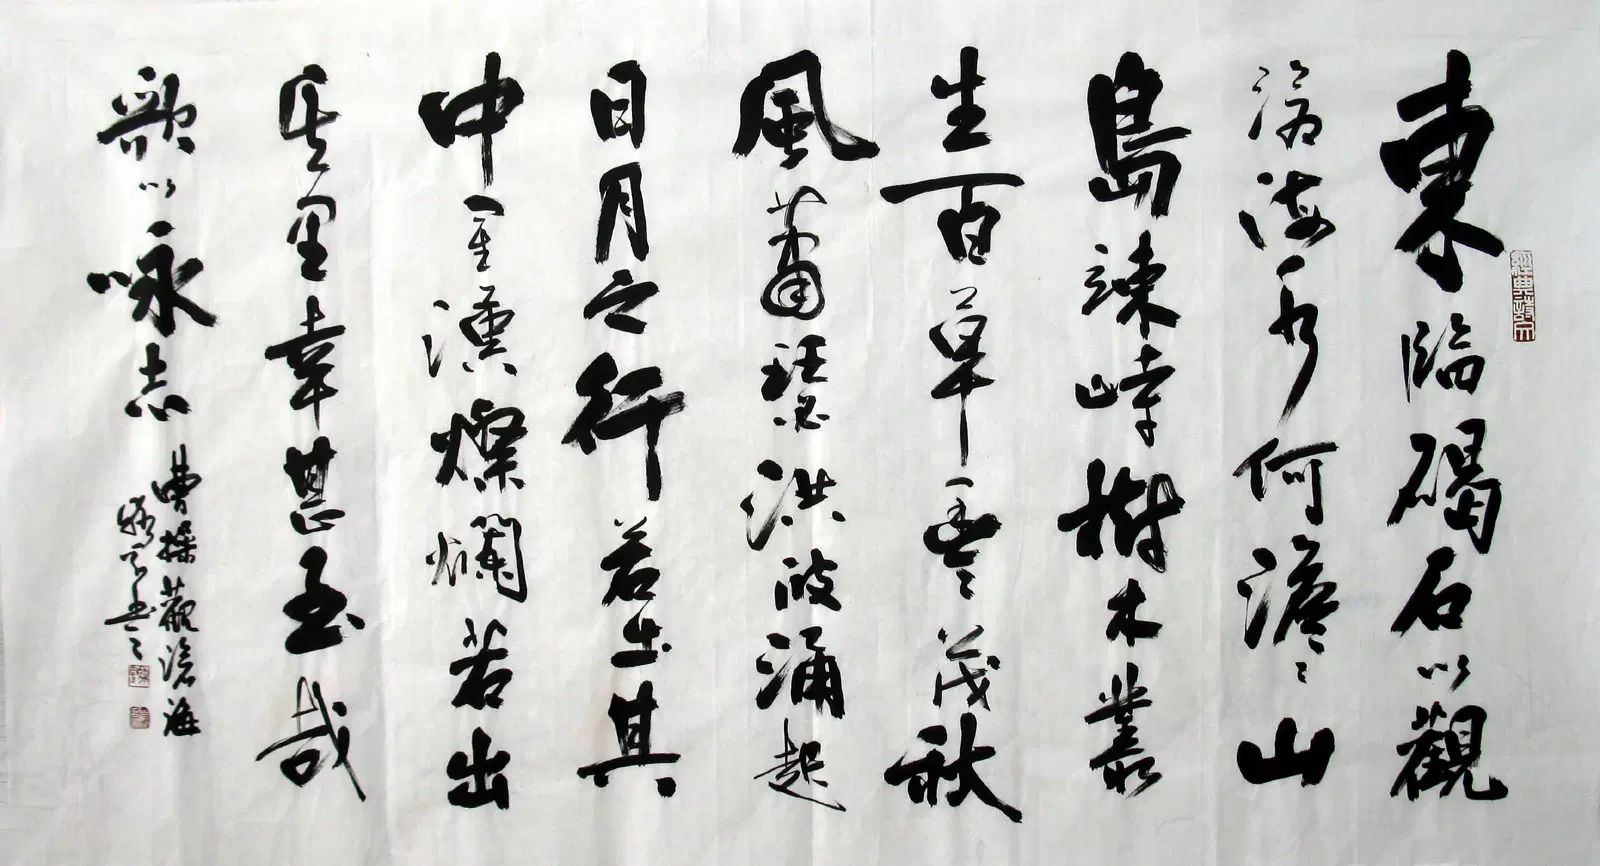 東臨碣石以觀
滄海水何澹々山
島竦峙樹木叢
生百草豐茂秋
風蕭瑟洪波涌起
日月之行若出其
中星漢燦爛若出
其里幸甚至哉
歌以咏志
曹操觀滄海